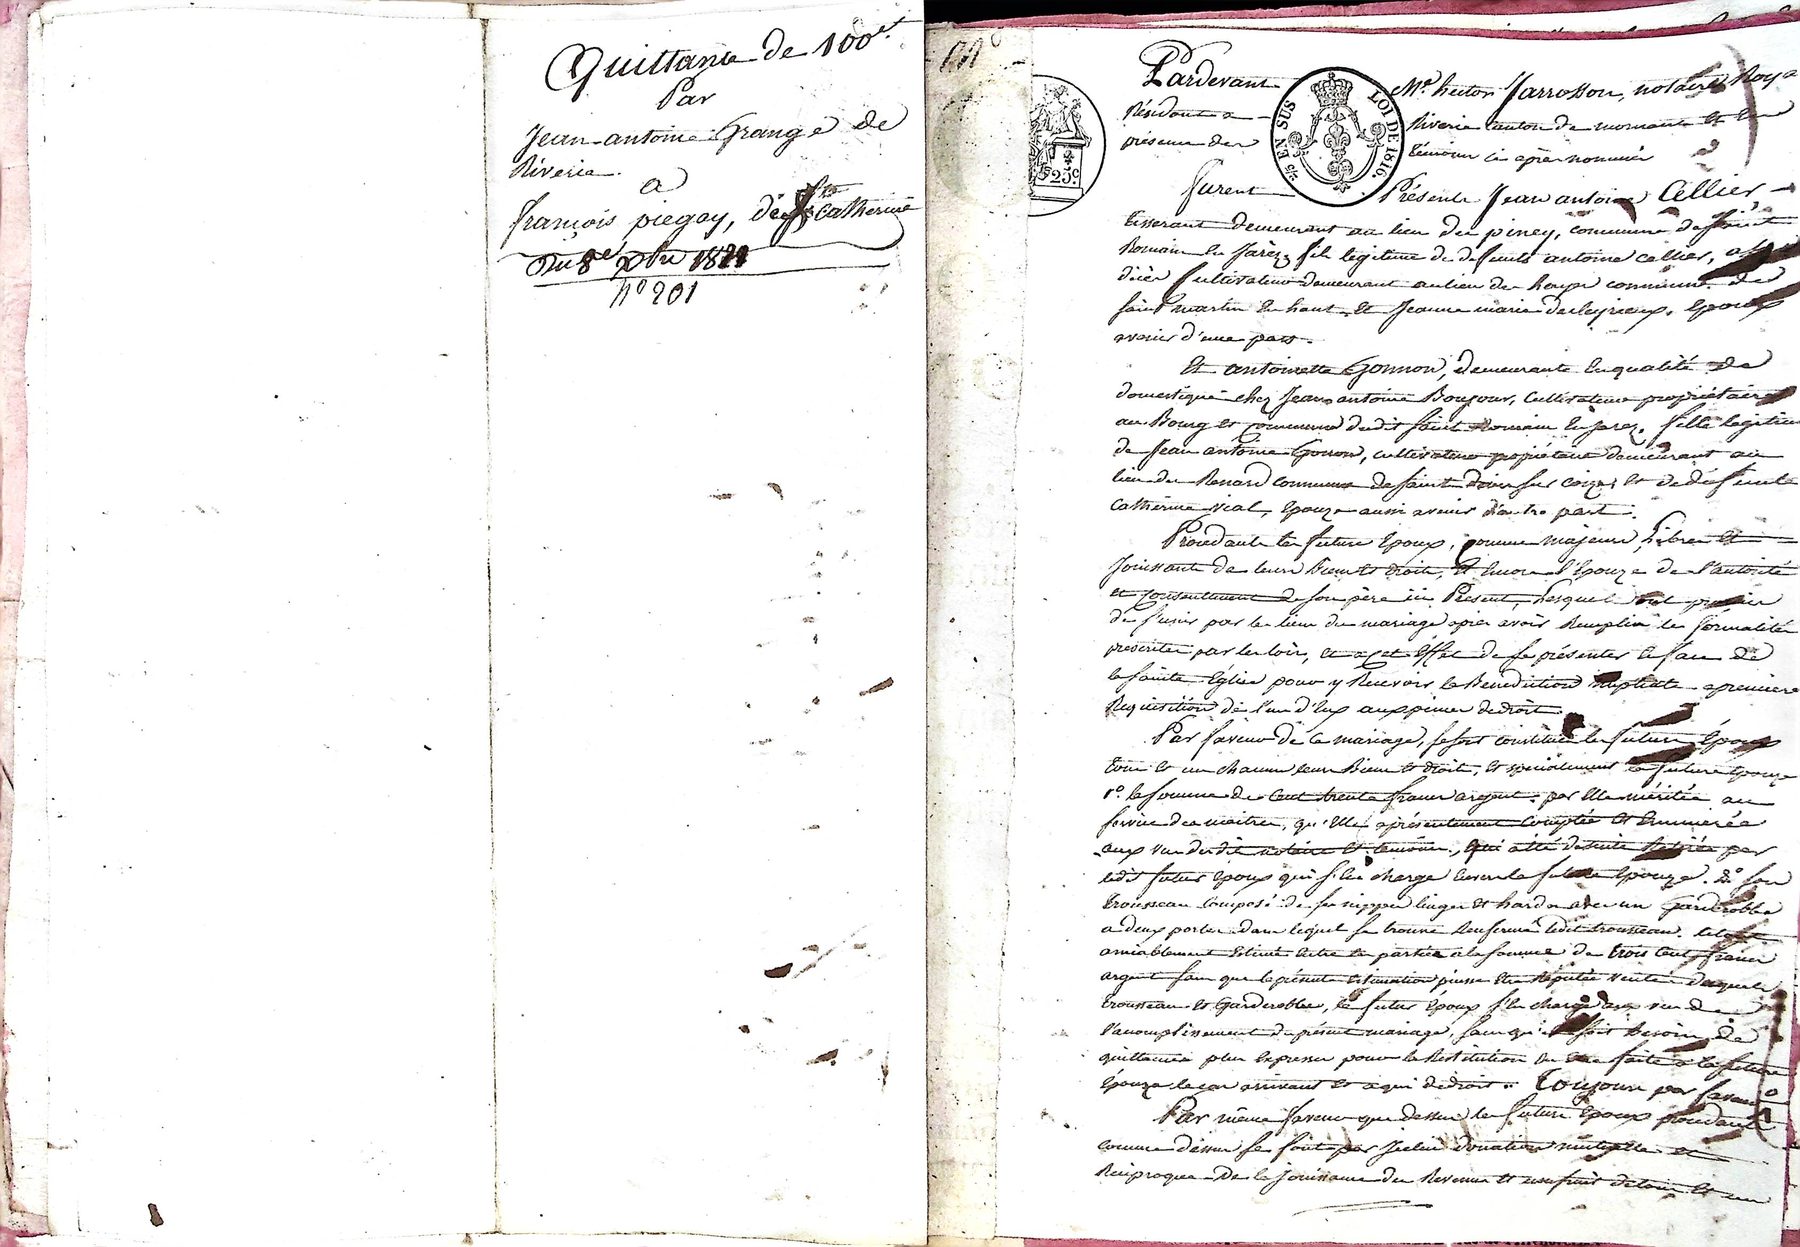 Quittance de 100 et
Par
Jean-antoine Grange de
Riverie
a
françois piegay, de Ste Catherine
Du 8e 1821
n° 201
Pardevant Me hector Jarrosson, notaire Roya
Résidant a Riverie canton de mornant et en
présence des témoins ci après nommés
EN SUS
LOI DE 1816.
25c
furent Présents Jean antoine Cellier
tisserant demeurant au lieu du piney, commune de Saint
Romain en Jarèz, fils légitime de défunts antoine Cellier,
cultivateur demeurant au lieu de haye commune de
saint martin en haut, et Jeanne marie epoux
avenir d'une part.
Et antoinette Gonnon, demeurante en qualité de
domestique chez Jean antoine Boujour, cultivateur propriétaire
au Bourg et commune dudit saint Romain en jarez, fille legitime
de Jean antoine Gonnon, cultivateur propriétaire demeurant au
lieu du Renard commune de saint sur coize, et de défunte
Catherine vial, epouze aussi avenir d'autre part.
Procedants les futurs epoux, comme majeurs, libres et
Jouissants de leurs biens et droits, et encore l'Epouze de l'autorité
et consentement de son père ici Présent, lesquels ont promis
de s'unir par les liens du mariage après avoir Remplis les formalités
prescrites par les loix, et a cet effet de se présenter en face de
la sainte Eglise pour y Recevoir la Benediction nuptiale a premiere
Requisition de l'un d'Eux aux peines de droit.
Par faveur de ce mariage, se sont constitués les futurs Epoux
tous et un chacun leurs Biens et droits, et spécialement la future epouze
1° la somme de cent trente francs argent, par Elle méritée au
service des maitres, qu'Elle a présentement comptée et Enumerée
aux vus dudit notaire et temoins, qui a été de suite Retirée par
ledit futur epoux qui s'en charge envers la future epouze. 2° son
trousseau composé de ses nippes linges et hardes avec un Garderobbe
a deux portes dans lequel se trouve Renfermé ledit trousseau, le tout
amiablement Estimé entre les parties a la somme de trois cents francs
argent sans que la présente estimation puisse etre Réputée vente desquels
trousseau et Garderobbe, le futur époux s'en charge aux vus de
l'accomplissement du présent mariage, sans qu'il soit Besoin de
quittance plus expresse pour la Restitution en etre faite a la future
Epouze le cas arrivant et a qui de droit. Toujours par faveur
Par même faveur que dessus les futurs Epoux procedants
comme dessus se font par Icelui donation mutuelle et
Réciproque de la Jouissance des Revenus et usufruit de tous et un